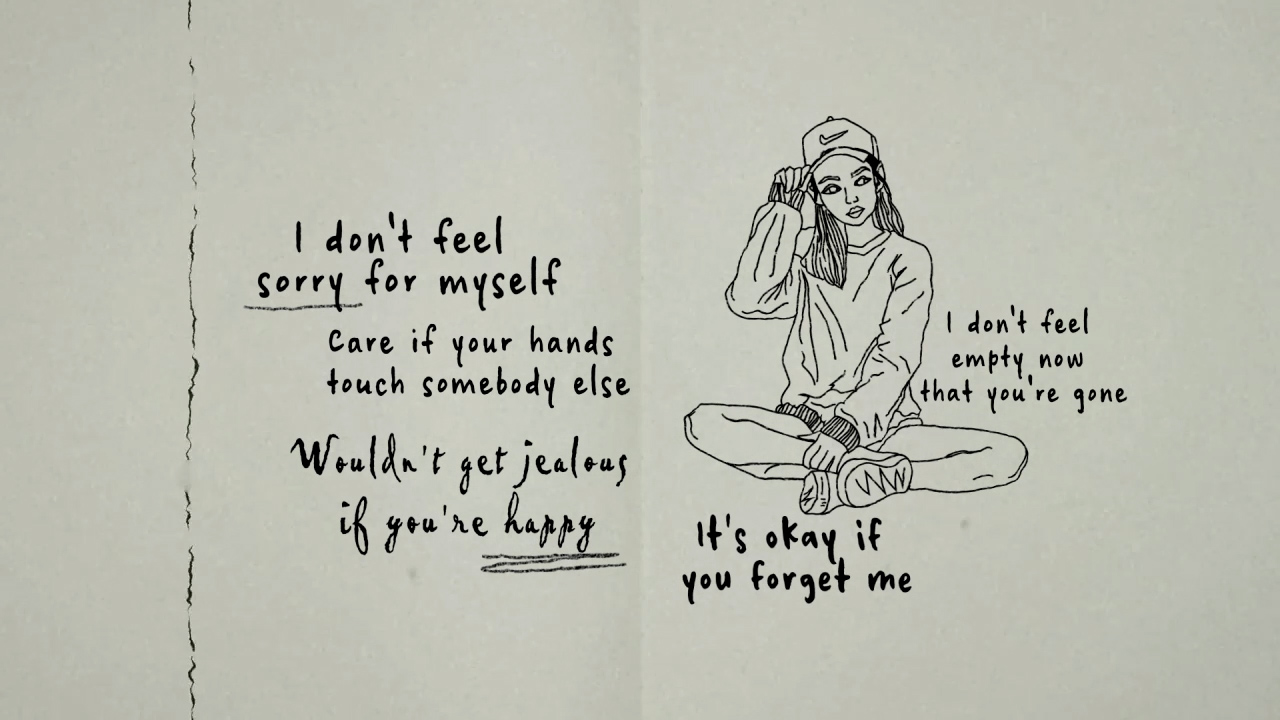 I don't feel
sorry for myself
Care if your hands
touch somebody else
Wouldn't get jealous
if you're happy
I don't feel
empty now
that you're gone
It's okay if
you forget me